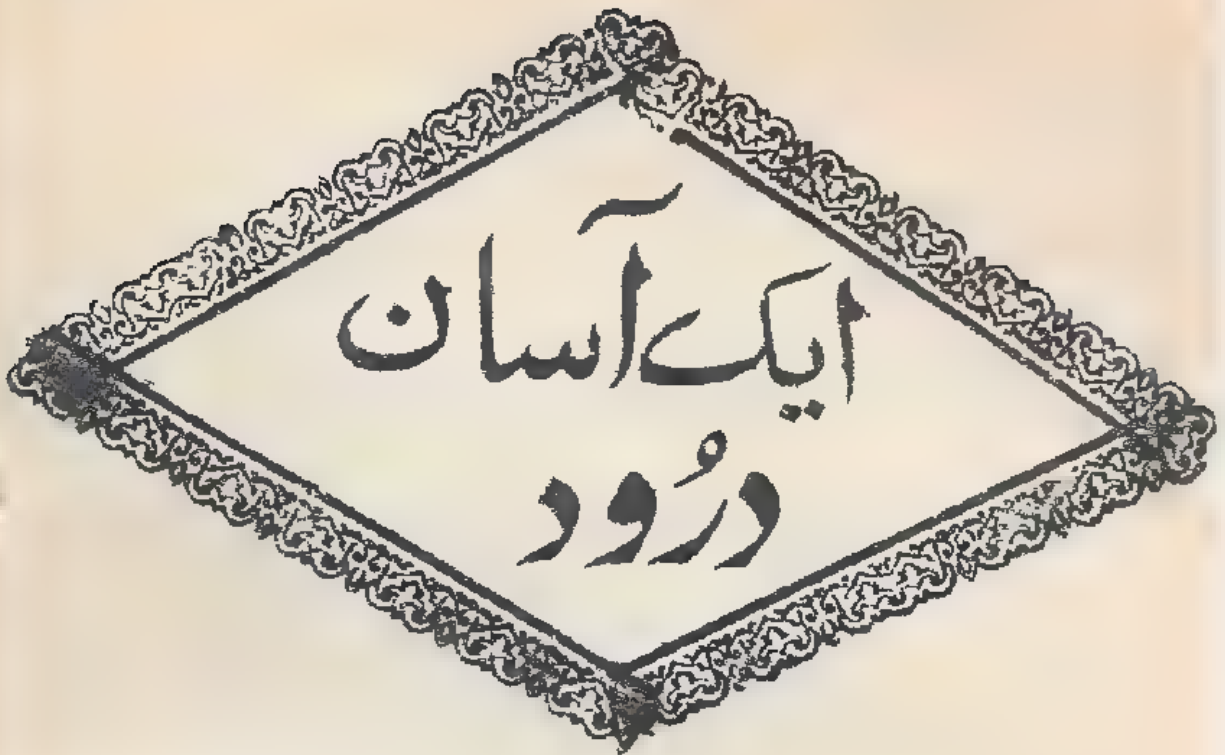 ایک آسان
درُود